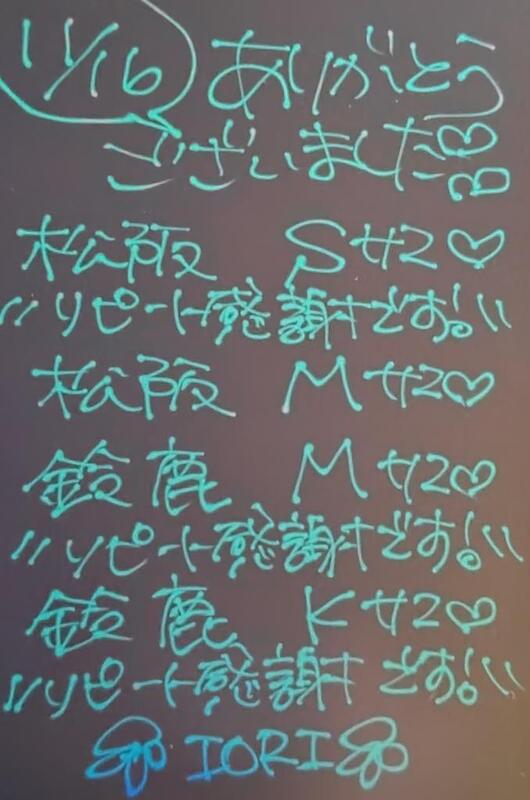 11/16 ありがとう
ございました♡
松阪 Sサン♡
〃リピート感謝です!〃
松阪 Mサン♡
鈴鹿 Mサン♡
〃リピート感謝です!〃
鈴鹿 Kサン♡
〃リピート感謝です!〃
IORI